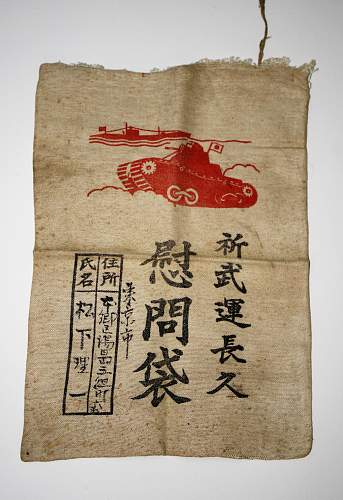 祈武運長久
慰問袋
東京市
住所 本郷区湯島三組町
氏名 松下理一